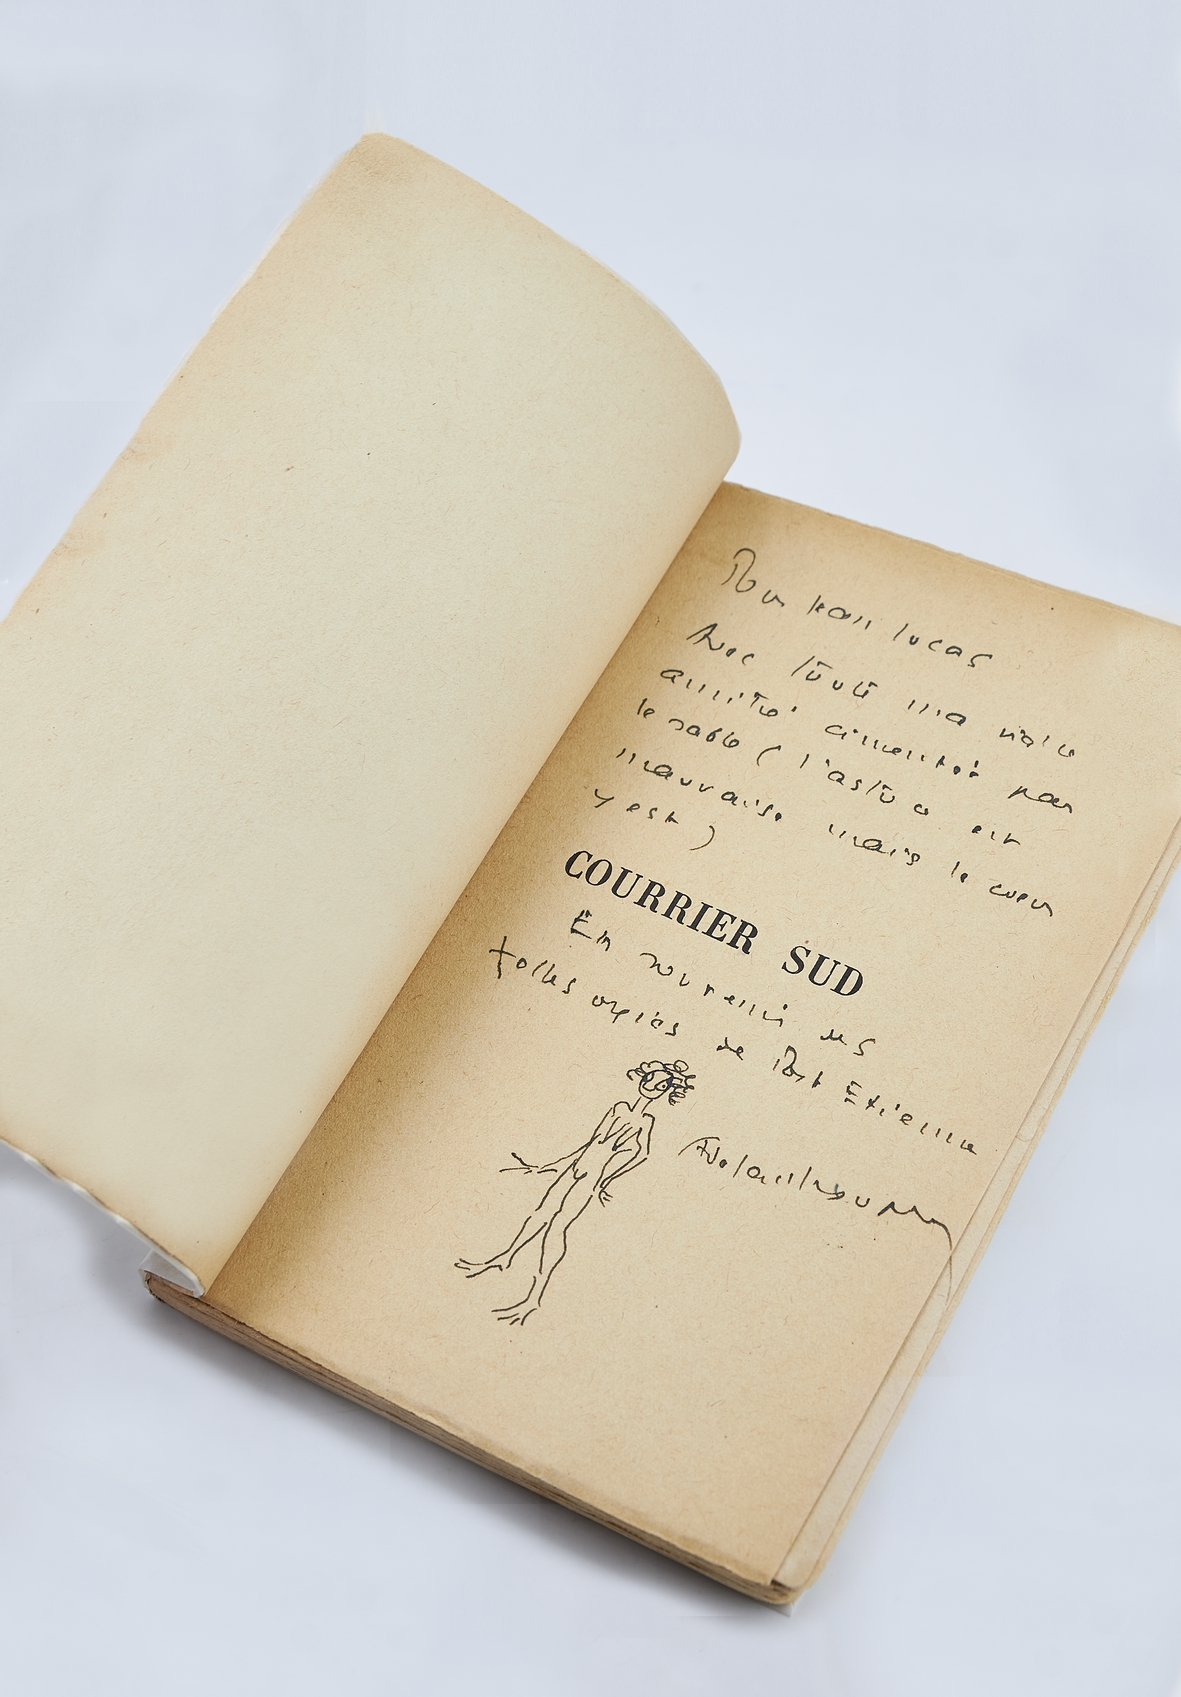 Pour Jean Lucas
Avec toute ma vieille
amitié cimentée par
le sable (l'astuce est
mauvaise mais le coeur
y est)
COURRIER SUD
En souvenir des
folles orgies de Port Etienne